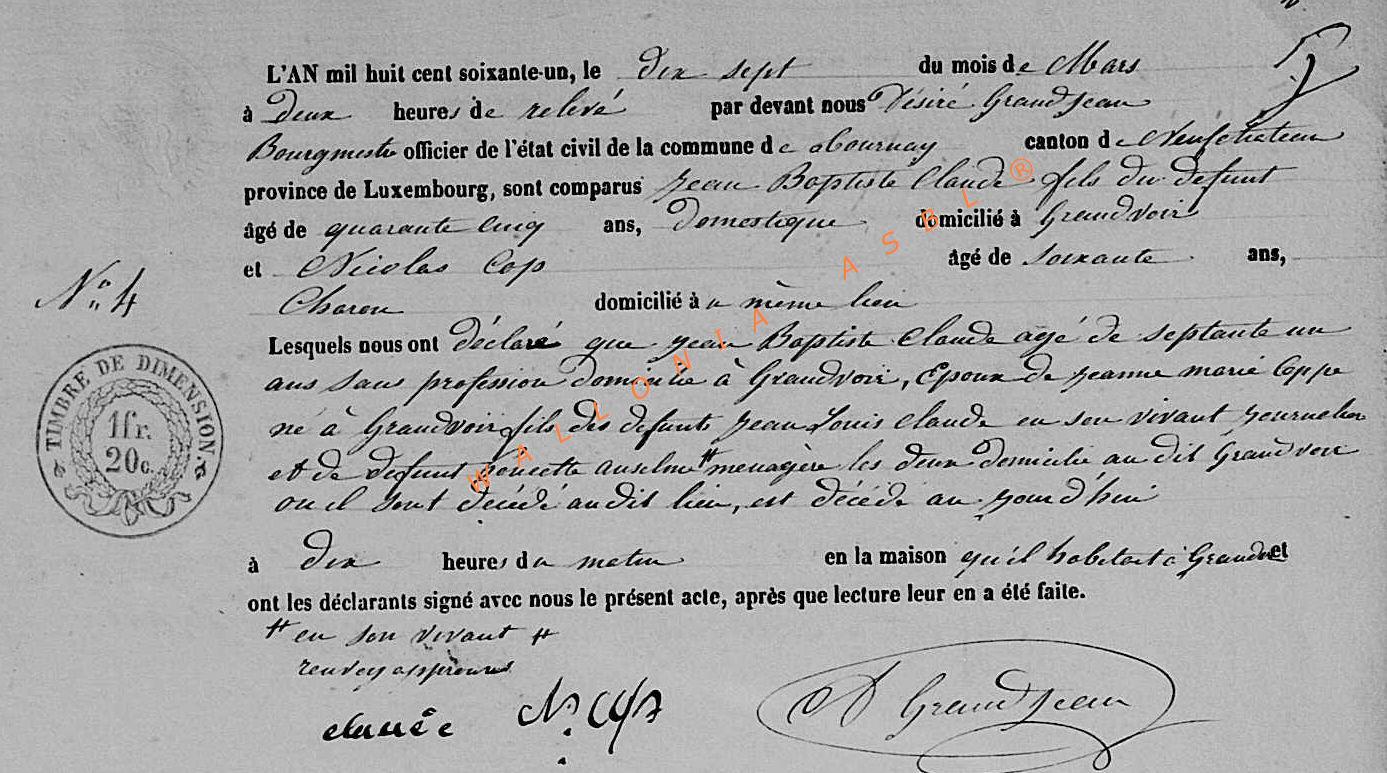 L'AN mil huit cent soixante-un, le dix sept du mois de Mars
à Deux heures de relevé par devant nous Désiré Grandjean
Bourgmestre officier de l'état civil de la commune de Tournay canton de Neufchateau
province de Luxembourg, sont comparus Jean Baptiste Claude fils du defunt
âgé de quarante cinq ans, Domestique domicilié à Grandvoir
et Nicolas Cop âgé de soixante ans,
Charon domicilié à u même lieu
Lesquels nous ont déclaré que Jean Baptiste Claude agé de septante un
ans sans profession domicilié à Grandvoir, Epoux de jeanne marie Coppe
né à Grandvoir fils des defunts Jean Louis Claude en son vivant journalier
et de defunt anselme # menagère les deux domicilié au dit Grandvoir
ou il sont décédé au dit lieu, est décédé au jourd'hui
à dix heures du matin en la maison qu'il habitait à Grandvoir et
ont les déclarants signé avec nous le présent acte, après que lecture leur en a été faite.
# en son vivant #
renvoy approuvé
N° 4
TIMBRE DE DIMENSION
1 fr.
20 c.
N. Cop
D Grandjean
WALLONIA ASBL ®